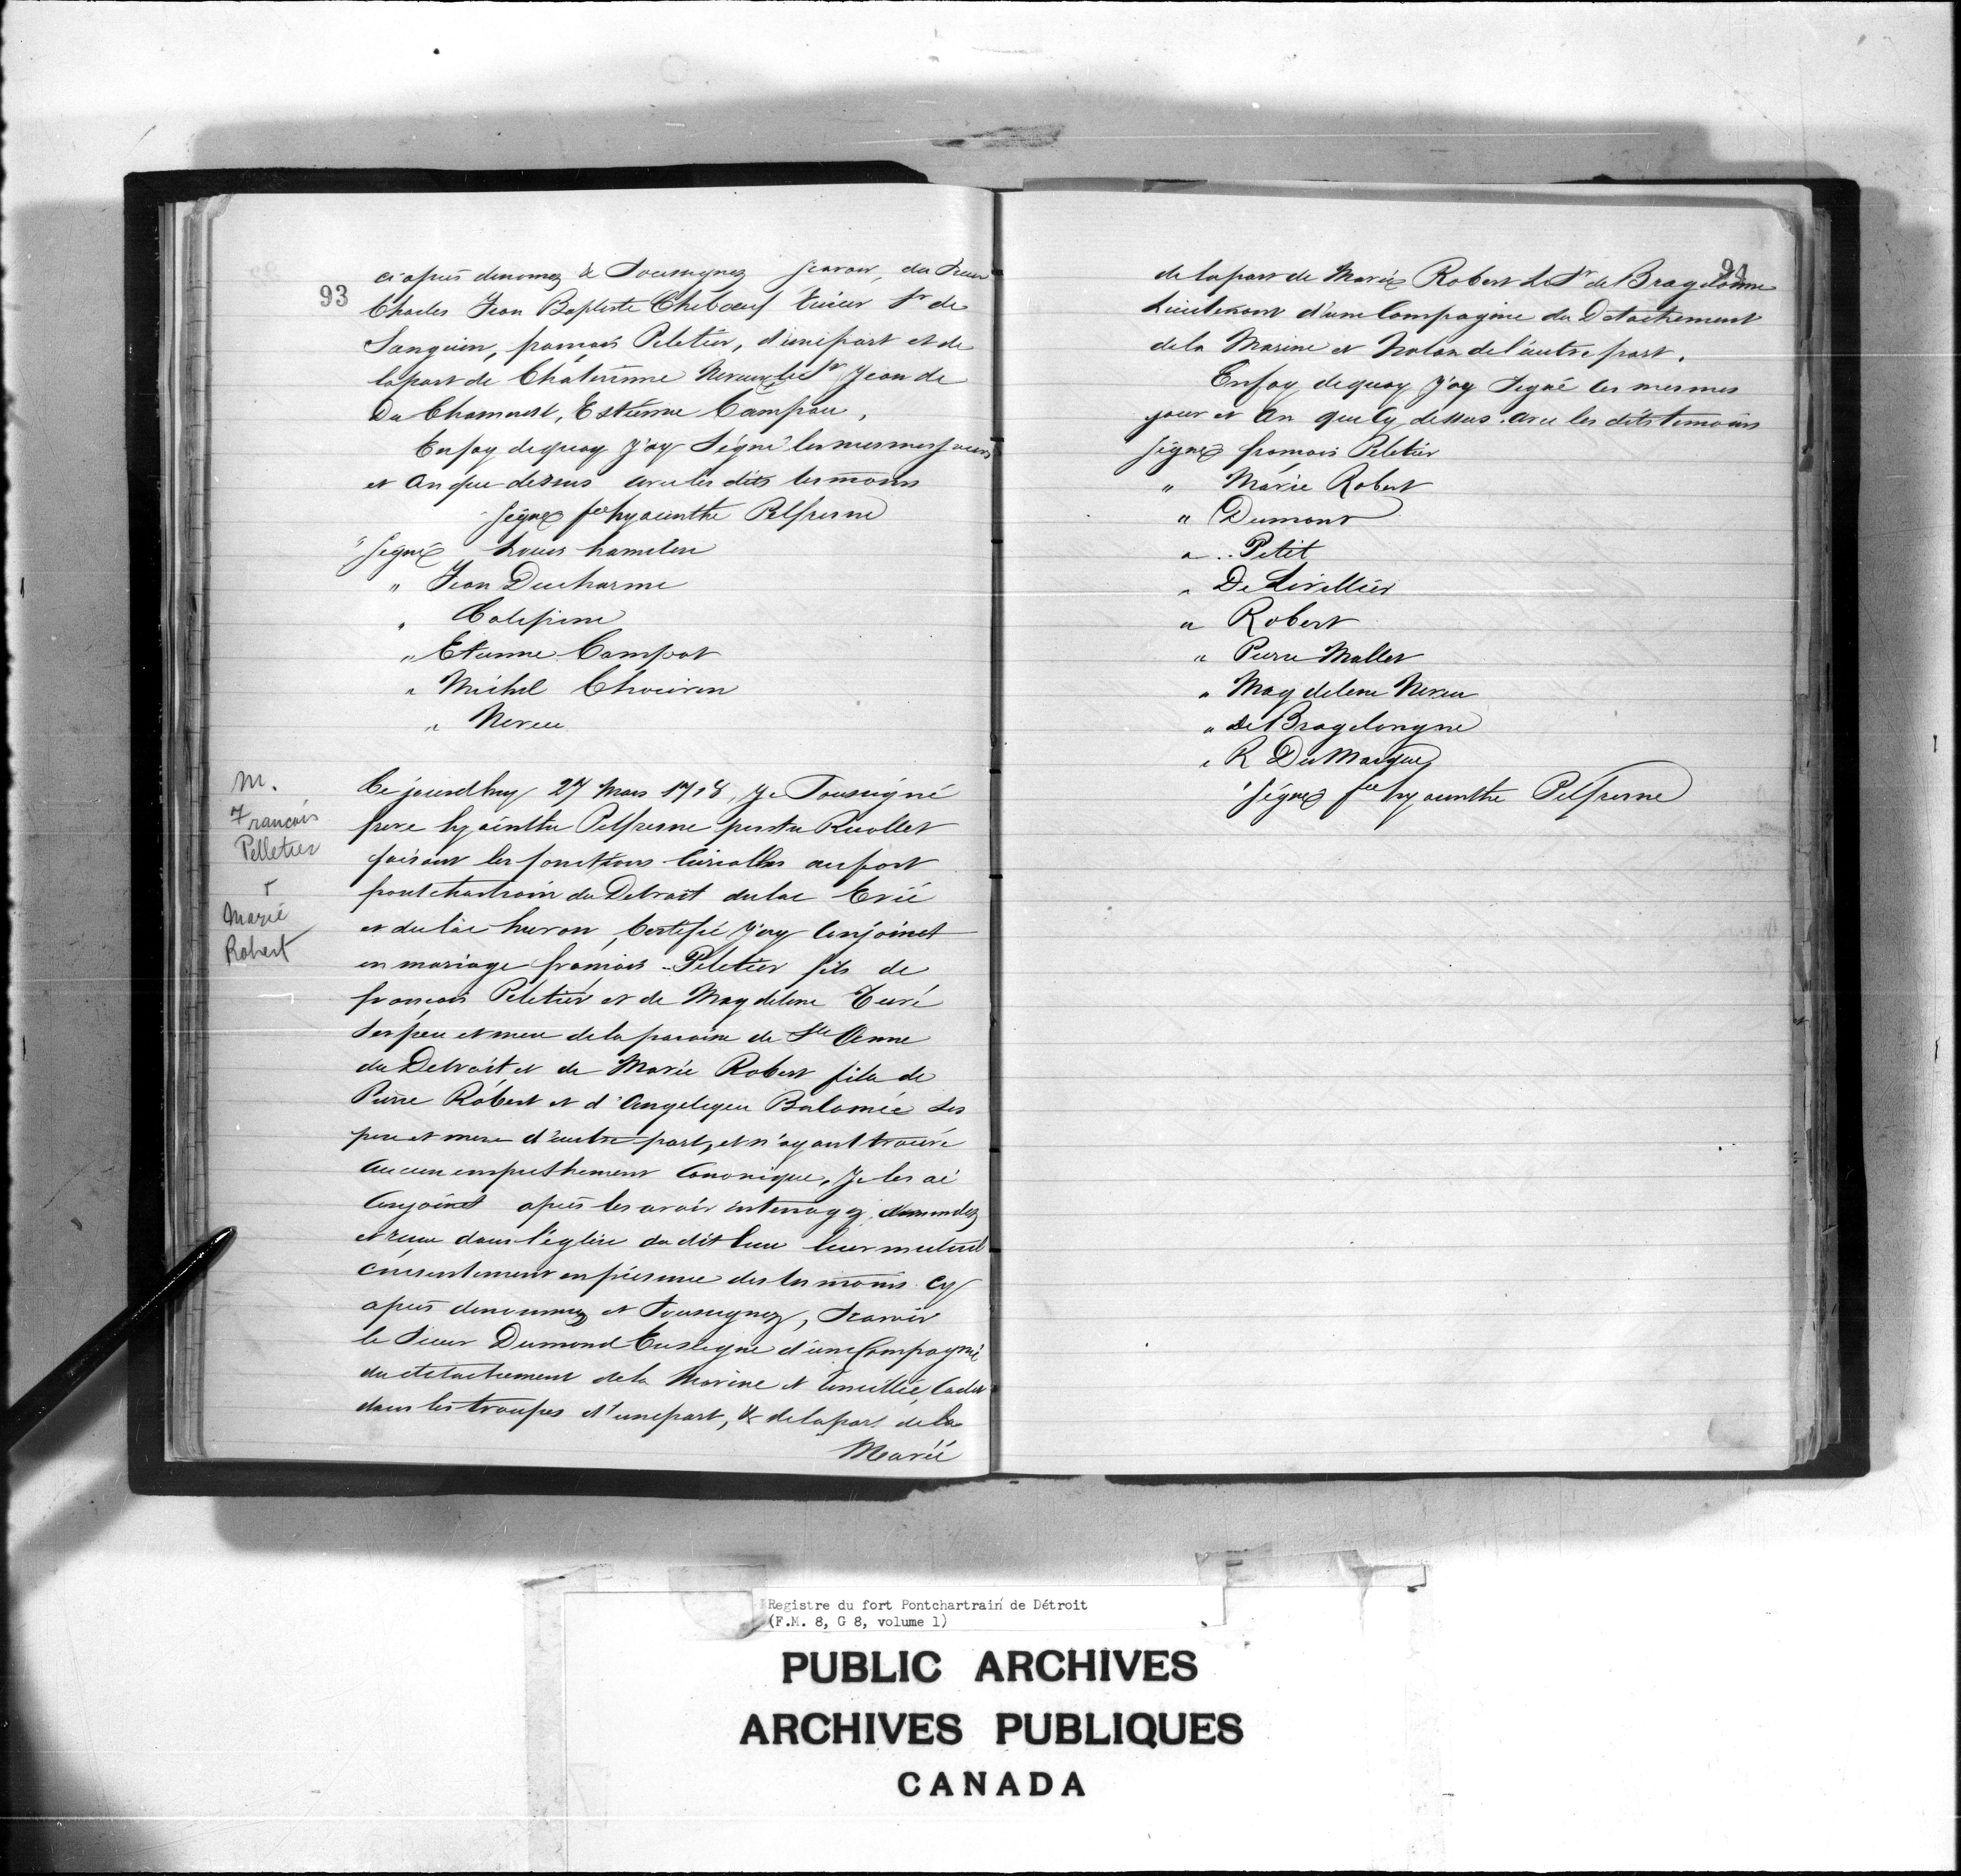 93
ci après denomez & Soussignez scavoir, du Sieur
Charles Jean Baptiste Chebœuf Sr de
Sanguin, francois Peletier, d'unepart et de
lapart de Chaterinne Neveu, le Sr Jean de
Du Chamaust, Estienne Campau,
Enfoy dequoy J'ay Signé les mesmes jours
et An que dessus avec les dits tesmoins
Signez fre hyacinthe Pelfresne
" Signé Louis hamelin
" Jean Ducharme
" Calepine
" Etienne Campot
" Michel Chouiron
" Neveu
M.
Francois
Pelletier
Marie
Robert
Ce jourdhuy 27 Mars 1718, Je Soussigné
frere hyacinthe Pelfresne Recollet
faisant les fonctions Curialles aufort
pontchartrain du Detroit dulac Erié
et du lac huron, Certifie J'ay Conjoinct
en mariage francois Peletier fils de
francois Peletier et de Magdelene Turé
ses pere et mere dela paroisse de Ste Anne
du Detroit et de Marie Robert fille de
Pierre Robert et d'Angelique Balomée Ses
pere et mere d'autre part, et n'ayant trouvé
Aucun empesthement Canonique, Je les ai
Conjoinct après les avoir interrogez, demandez
et reçu dans l'église du dit lieu leur mutuel
Consentement en présence des tesmoins cy
après denommez et Soussignez, Scavoir
le Sieur Dumond Enseigne d'une Compagnie
du detachement dela Marine et Cadet
dans les troupes d'unepart, & delapart dela
Marié
94
delapart de Marie Robert Le Sr de Bragelonne
Lieutenant d'une Compagnie du Detachement
dela Marine et Nolan del'autre part.
Enfoy dequoy J'ay Signé les mesmes
jour et An que Cy dessus. Avec les dits temoins
Signez francois Peletier
" Marie Robert
" Dumont
" Petit
" De Livillier
" Robert
" Pierre Mallet
" Magdelene Neveu
" de Bragelongne
" R DuMarque
" Signez fre hyacinthe Pelfresne
Registre du fort Pontchartrain de Détroit
(F.M. 8, G 8, volume 1)
PUBLIC ARCHIVES
ARCHIVES PUBLIQUES
CANADA